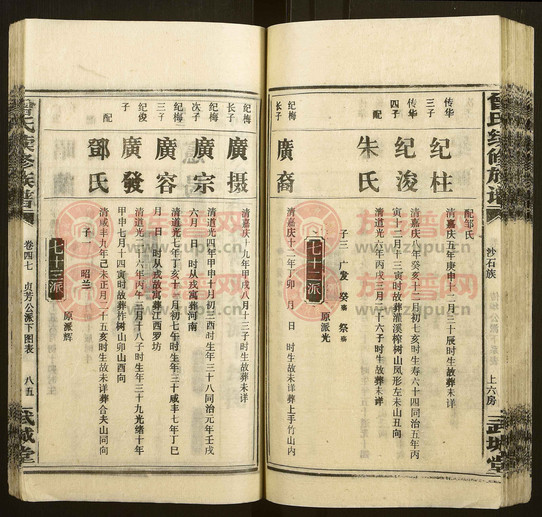 曾氏续修族谱
沙石族
上六房
武城堂
配邹氏
清嘉庆五年庚申十二月三十辰时生故葬未详
传华三子
纪柱
清嘉庆八年癸亥十二月初五亥时生寿六十四同治五年丙
寅十二月初三申时故葬灌溪榨树山凤形左未山丑向
传华四子
纪浚
清道光六年丙戌三月十六子时生故葬未详
配
朱氏
子三 广发
七十二派
原派光
清嘉庆十二年丁卯 月 日 时生故未详葬上手竹山内
纪梅长子
廣裔
清嘉庆十九年甲戌八月十三子时生故葬未详
纪梅长子
廣摄
清道光四年甲申十月初三酉时生年三十八同治元年壬戌
六月 日 时从戎故寓葬河南
纪梅次子
廣宗
清道光七年丁亥十一月初七午时生年三十咸丰七年丁巳
月 日 时从戎故寓葬江西罗坊
纪梅三子
廣容
清道光十六年丙午三月十八子时生年三十九光绪十年
甲申七月十四寅时故葬柞树山卯山酉向
纪浚子
廣發
清咸丰九年己未正月三十五亥时生故未详葬合夫山同向
配
鄧氏
子一 昭兰
七十三派
原派辉
曾氏续修族谱
卷四七
贞芳公派下图表
八五
武城堂